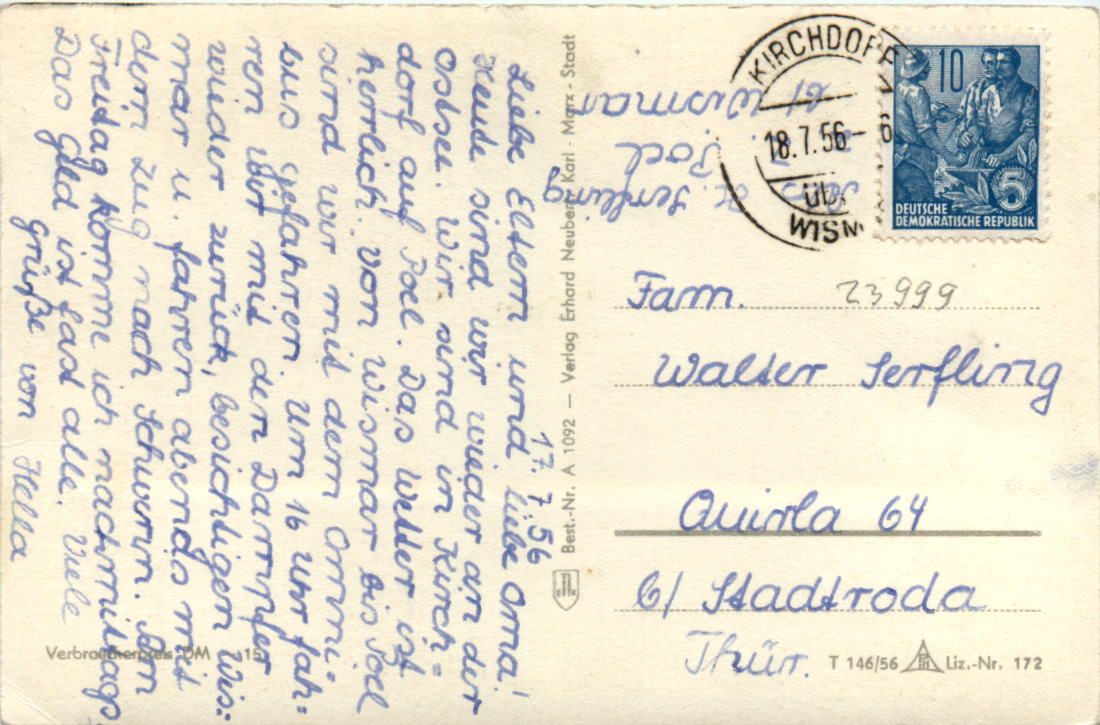 17. 7. 56
Liebe Eltern und liebe Oma!
Heute sind wir wieder an der
Ostsee. Wir sind in Kirch=
dorf auf Poel. Das Wetter ist
herrlich. Von Wismar bis Poel
sind wir mit dem Omni-
bus gefahren. Um 16 Uhr fah=
ren wir mit den Dampfer
wieder zurück, besichtigen Wis=
mar u. fahren abends mit
dem Zug nach Schwerin. Am
Freitag komme ich nachmittags
Das Geld ist fast alle. Viele
Grüße von Hella
Verbraucherpreis DM -,15
Best.-Nr. A 1092 — Verlag Erhard Neubert, Karl-Marx-Stadt
H. Serfling
Poel
b/ Wismar
KIRCHDORF
18.7.56-6
ÜB
WISM
10
5
DEUTSCHE
DEMOKRATISCHE REPUBLIK
23999
Fam.
Walter Serfling
Quirla 64
b/ Stadtroda
Thür.
T 146/56 Liz.-Nr. 172